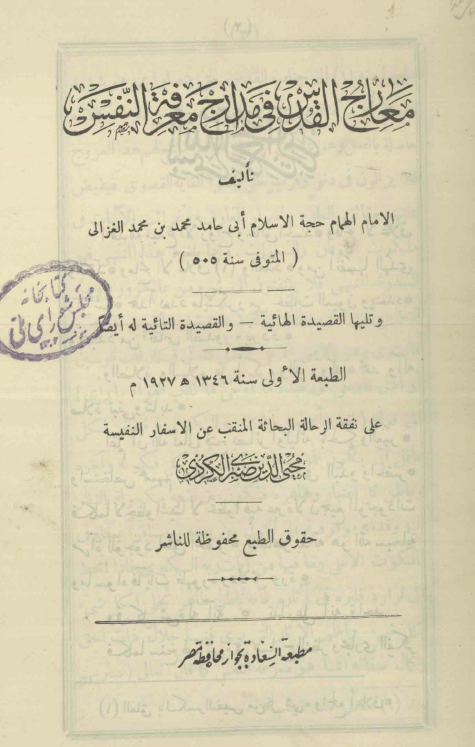 معارج القدس فى مدارج معرفة النفس
تأليف
الامام الهمام حجة الاسلام أبى حامد محمد بن محمد الغزالى
( المتوفى سنة ٥٠٥ )
وتليها القصيدة الهائية — والقصيدة التائية له أيضا
الطبعة الأولى سنة ١٣٤٦ ه ١٩٢٧ م
على نفقة الرحالة البحاثة المنقب عن الاسفار النفيسة
محيى الدين صبرى الكردى
حقوق الطبع محفوظة للناشر
مطبعة السعادة بجوار محافظة مصر
كتابخانه
مجلس شوراى ملى